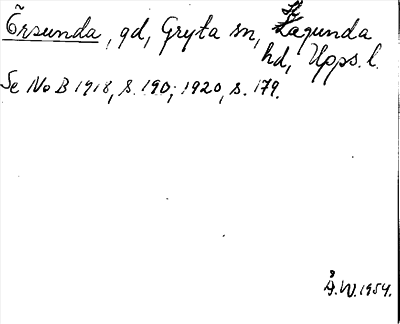 Örsunda, gd, Gryta sn, Lagunda
hd, Upps. l.
Se NoB 1918, s. 190; 1920, s. 179.
Å.W. 1954.